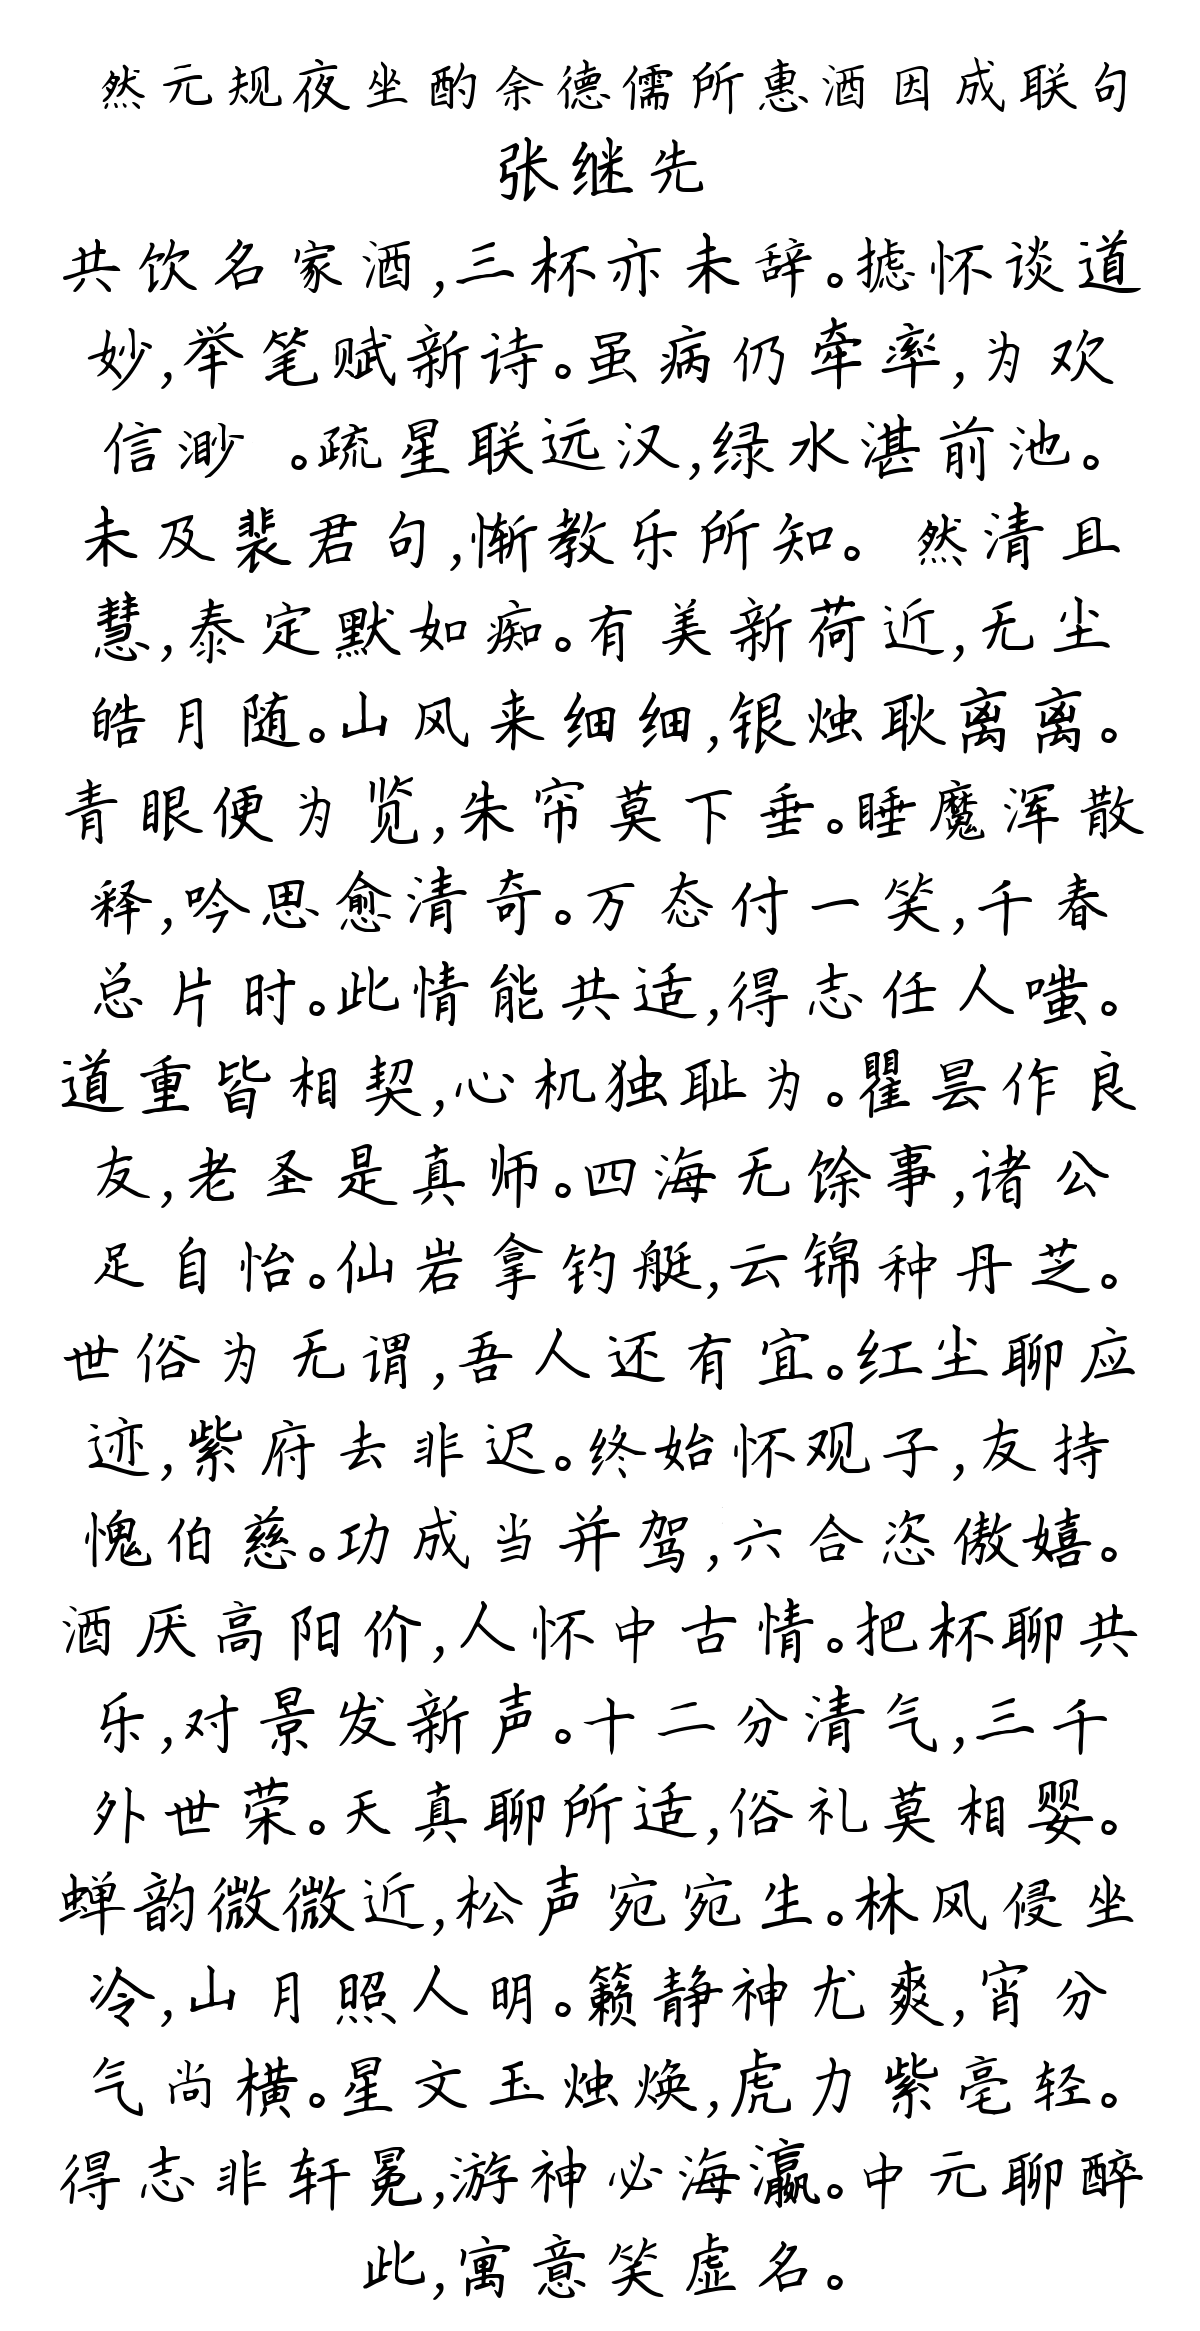 然元规夜坐酌余德儒所惠酒因成联句
张继先
共饮名家酒,三杯亦未辞。摅怀谈道
妙,举笔赋新诗。虽病仍牵率,为欢
信渺 。疏星联远汉,绿水湛前池。
未及裴君句,惭教乐所知。 然清且
慧,泰定默如痴。有美新荷近,无尘
皓月随。山风来细细,银烛耿离离。
青眼便为览,朱帘莫下垂。睡魔浑散
释,吟思愈清奇。万态付一笑,千春
总片时。此情能共适,得志任人嗤。
道重皆相契,心机独耻为。瞿昙作良
友,老圣是真师。四海无馀事,诸公
足自怡。仙岩拿钓艇,云锦种丹芝。
世俗为无谓,吾人还有宜。红尘聊应
迹,紫府去非迟。终始怀观子,友持
愧伯慈。功成当并驾,六合恣傲嬉。
酒厌高阳价,人怀中古情。把杯聊共
乐,对景发新声。十二分清气,三千
外世荣。天真聊所适,俗礼莫相婴。
蝉韵微微近,松声宛宛生。林风侵坐
冷,山月照人明。籁静神尤爽,宵分
气尚横。星文玉烛焕,虎力紫毫轻。
得志非轩冕,游神必海瀛。中元聊醉
此,寓意笑虚名。